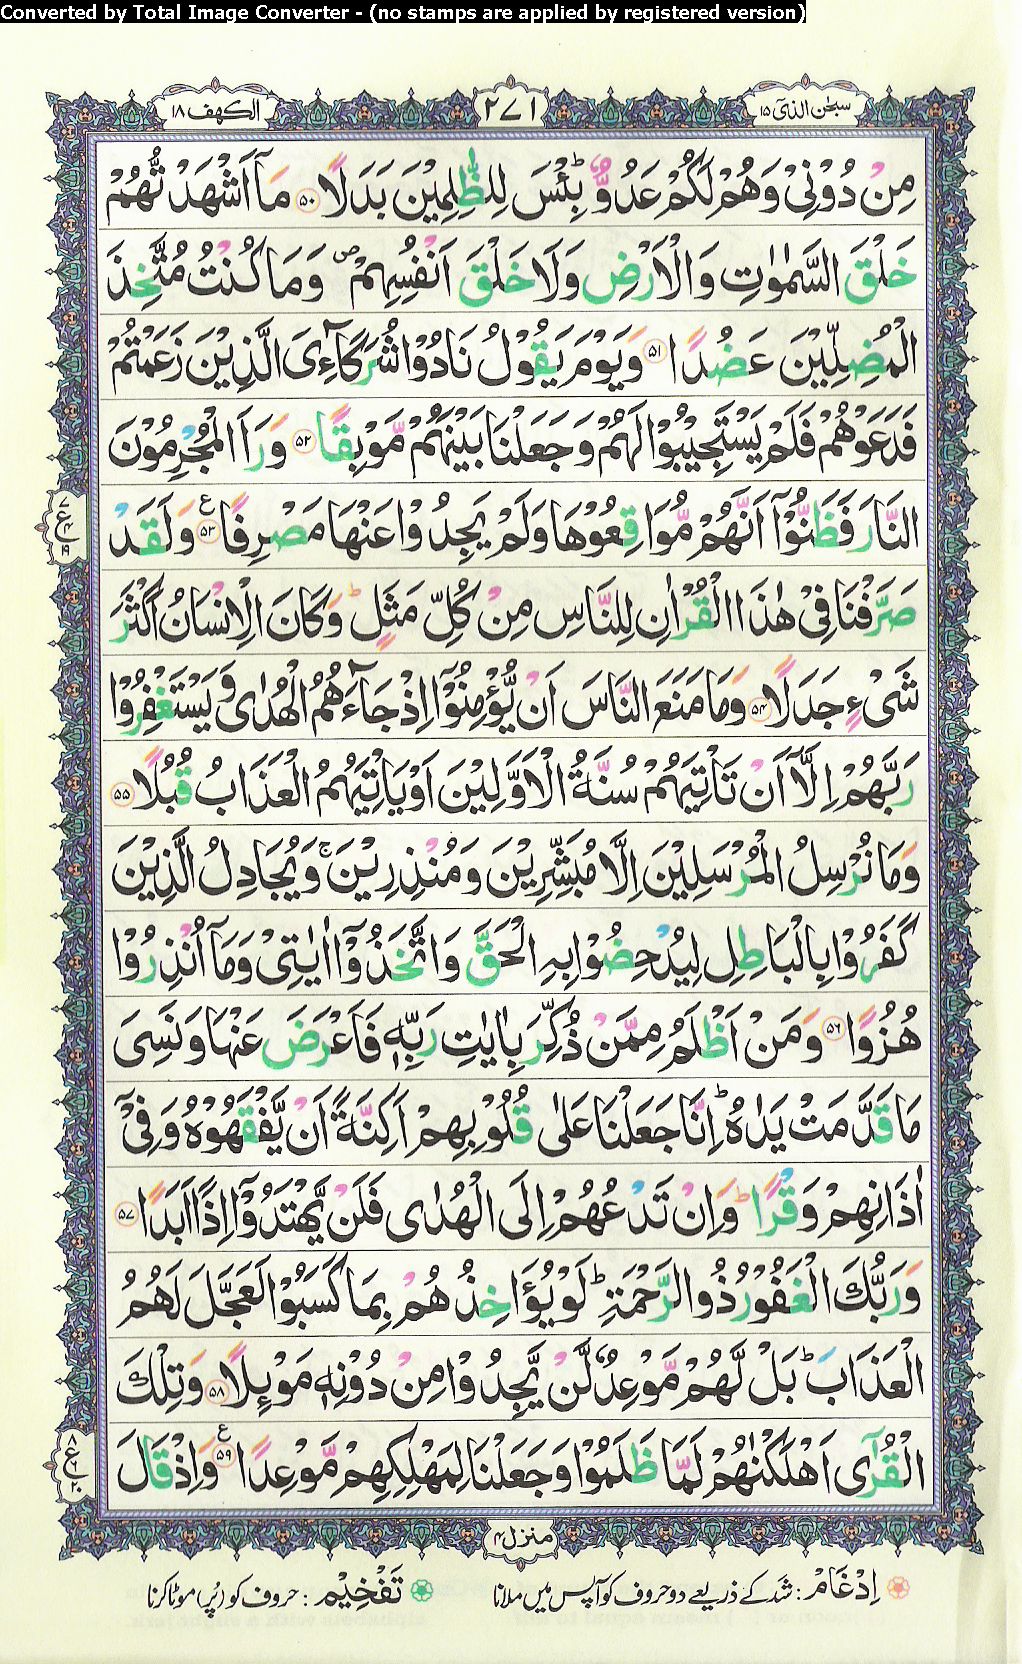 Converted by Total Image Converter - (no stamps are applied by registered version)
سبحٰن الذی ١٥
٢٧١
الكهف ١٨
مِنْ دُوْنِیْ وَهُمْ لَكُمْ عَدُوٌّ ؕ بِئْسَ لِلظّٰلِمِیْنَ بَدَلًا ۵۰ مَاۤ اَشْهَدْتُّهُمْ
خَلْقَ السَّمٰوٰتِ وَالْاَرْضِ وَلَا خَلْقَ اَنْفُسِهِمْ ۪ وَمَا كُنْتُ مُتَّخِذَ
الْمُضِلِّیْنَ عَضُدًا ۵۱ وَیَوْمَ یَقُوْلُ نَادُوْا شُرَكَآءِیَ الَّذِیْنَ زَعَمْتُمْ
فَدَعَوْهُمْ فَلَمْ یَسْتَجِیْبُوْا لَهُمْ وَجَعَلْنَا بَیْنَهُمْ مَّوْبِقًا ۵۲ وَرَاَ الْمُجْرِمُوْنَ
النَّارَ فَظَنُّوْۤا اَنَّهُمْ مُّوَاقِعُوْهَا وَلَمْ یَجِدُوْا عَنْهَا مَصْرِفًا ۵۳ ع وَلَقَدْ
صَرَّفْنَا فِیْ هٰذَا الْقُرْاٰنِ لِلنَّاسِ مِنْ كُلِّ مَثَلٍ ؕ وَكَانَ الْاِنْسَانُ اَكْثَرَ
شَیْءٍ جَدَلًا ۵۴ وَمَا مَنَعَ النَّاسَ اَنْ یُّؤْمِنُوْۤا اِذْ جَآءَهُمُ الْهُدٰی وَیَسْتَغْفِرُوْا
رَبَّهُمْ اِلَّاۤ اَنْ تَاْتِیَهُمْ سُنَّةُ الْاَوَّلِیْنَ اَوْ یَاْتِیَهُمُ الْعَذَابُ قُبُلًا ۵۵
وَمَا نُرْسِلُ الْمُرْسَلِیْنَ اِلَّا مُبَشِّرِیْنَ وَمُنْذِرِیْنَ ۚ وَیُجَادِلُ الَّذِیْنَ
كَفَرُوْا بِالْبَاطِلِ لِیُدْحِضُوْا بِهِ الْحَقَّ وَاتَّخَذُوْۤا اٰیٰتِیْ وَمَاۤ اُنْذِرُوْا
هُزُوًا ۵۶ وَمَنْ اَظْلَمُ مِمَّنْ ذُكِّرَ بِاٰیٰتِ رَبِّهٖ فَاَعْرَضَ عَنْهَا وَنَسِیَ
مَا قَدَّمَتْ یَدٰهُ ؕ اِنَّا جَعَلْنَا عَلٰی قُلُوْبِهِمْ اَكِنَّةً اَنْ یَّفْقَهُوْهُ وَفِیْۤ
اٰذَانِهِمْ وَقْرًا ؕ وَاِنْ تَدْعُهُمْ اِلَی الْهُدٰی فَلَنْ یَّهْتَدُوْۤا اِذًا اَبَدًا ۵۷
وَرَبُّكَ الْغَفُوْرُ ذُو الرَّحْمَةِ ؕ لَوْ یُؤَاخِذُهُمْ بِمَا كَسَبُوْا لَعَجَّلَ لَهُمُ
الْعَذَابَ ؕ بَلْ لَّهُمْ مَّوْعِدٌ لَّنْ یَّجِدُوْا مِنْ دُوْنِهٖ مَوْئِلًا ۵۸ وَتِلْكَ
الْقُرٰۤی اَهْلَكْنٰهُمْ لَمَّا ظَلَمُوْا وَجَعَلْنَا لِمَهْلِكِهِمْ مَّوْعِدًا ۵۹ ع وَاِذْ قَالَ
منزل ۴
اِدْغَام : شد کے ذریعے دو حروف کو آپس میں ملانا
تَفْخِیْم : حروف کو (پُر) موٹا کرنا